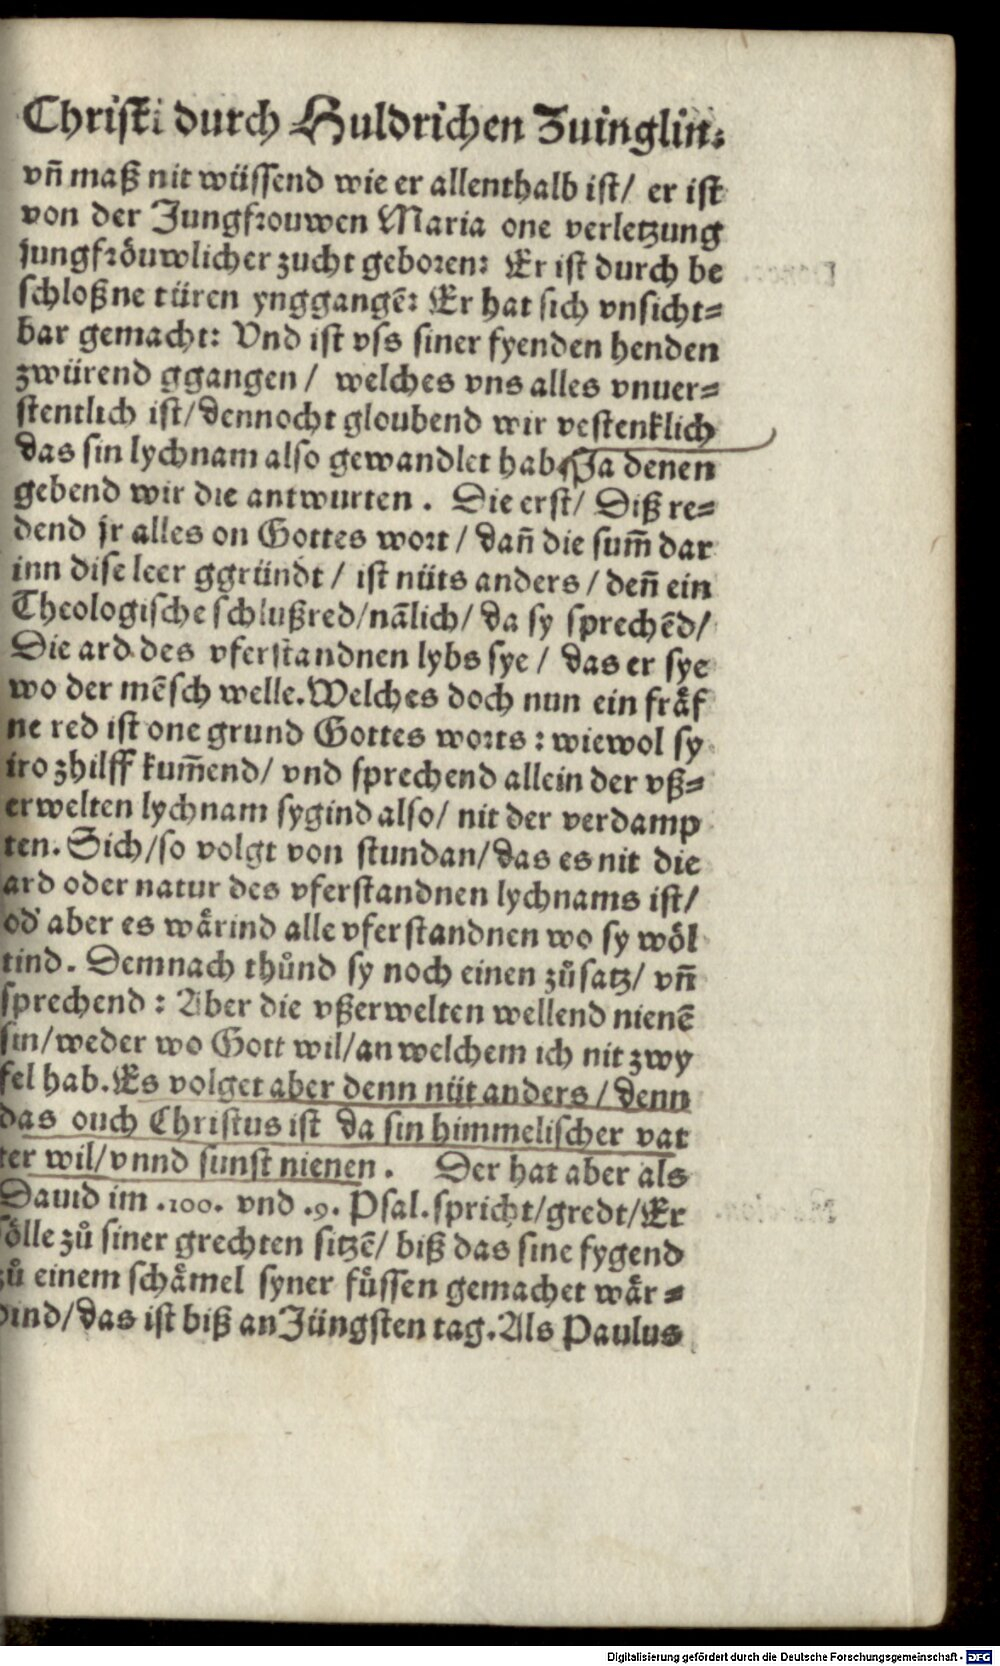 Christi durch Huldrichen Zuinglin.
vñ maß nit wüssend wie er allenthalb ist/ er ist
von der Jungfrouwen Maria one verletzung
jungfröuwlicher zucht geboren: Er ist durch be
schloßne türen ynggangẽ: Er hat sich vnsicht=
bar gemacht: Vnd ist vss siner fyenden henden
zwürend ggangen/ welches vns alles vnuer=
stentlich ist/dennocht gloubend wir vestenklich
das sin lychnam also gewandlet hab. Ja denen
gebend wir die antwurten. Die erst/ Diß re=
dend jr alles on Gottes wort/ dañ die sum̃ dar
inn dise leer ggründt/ ist nüts anders/ deñ ein
Theologische schlußred/nãlich/ da sy sprechẽd/
Die ard des vferstandnen lybs sye/ das er sye
wo der mẽsch welle. Welches doch nun ein fråf
ne red ist one grund Gottes worts: wiewol sy
iro zhilff kum̃end/ vnd sprechend allein der vß=
erwelten lychnam sygind also/ nit der verdamp
ten. Sich/so volgt von stundan/das es nit die
ard oder natur des vferstandnen lychnams ist/
od' aber es wårind alle vferstandnen wo sy wöl
tind. Demnach thůnd sy noch einen zůsatz/ vñ
sprechend: Aber die vßerwelten wellend nienẽ
sin/weder wo Gott wil/an welchem ich nit zwy
fel hab. Es volget aber denn nüt anders/denn
das ouch Christus ist da sin himmelischer vat
ter wil/vnnd sunst nienen. Der hat aber als
Dauid im .100. vnd .9. Psal. spricht/gredt/Er
sölle zů siner grechten sitzẽ/ biß das sine fygend
zů einem schåmel syner füssen gemachet wår=
dind/das ist biß an Jüngsten tag. Als Paulus
Digitalisierung gefördert durch die Deutsche Forschungsgemeinschaft - DFG